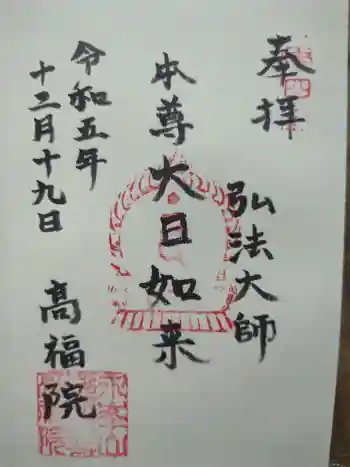 奉拝
弘法大師
本尊大日如来
令和五年
十二月十九日
高福院